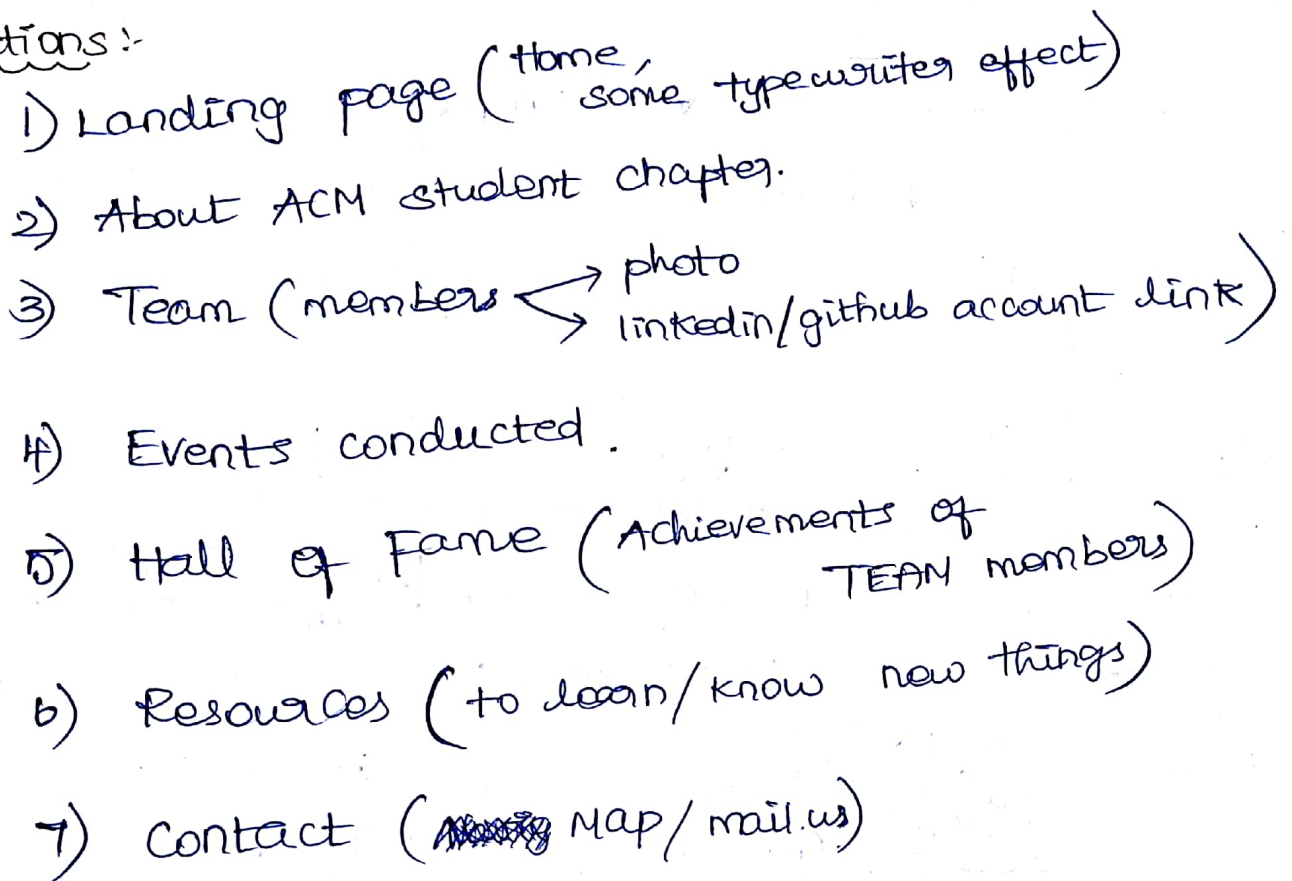 tions :-
1) Landing page ( Home,
some typewriter effect)
2) About ACM student chapter.
3) Team (members → photo
→ linkedin/github account link)
4) Events conducted.
5) Hall of Fame ( Achievements of
TEAM members)
6) Resources ( to learn/know new things)
7) Contact ( Map/mail.us)